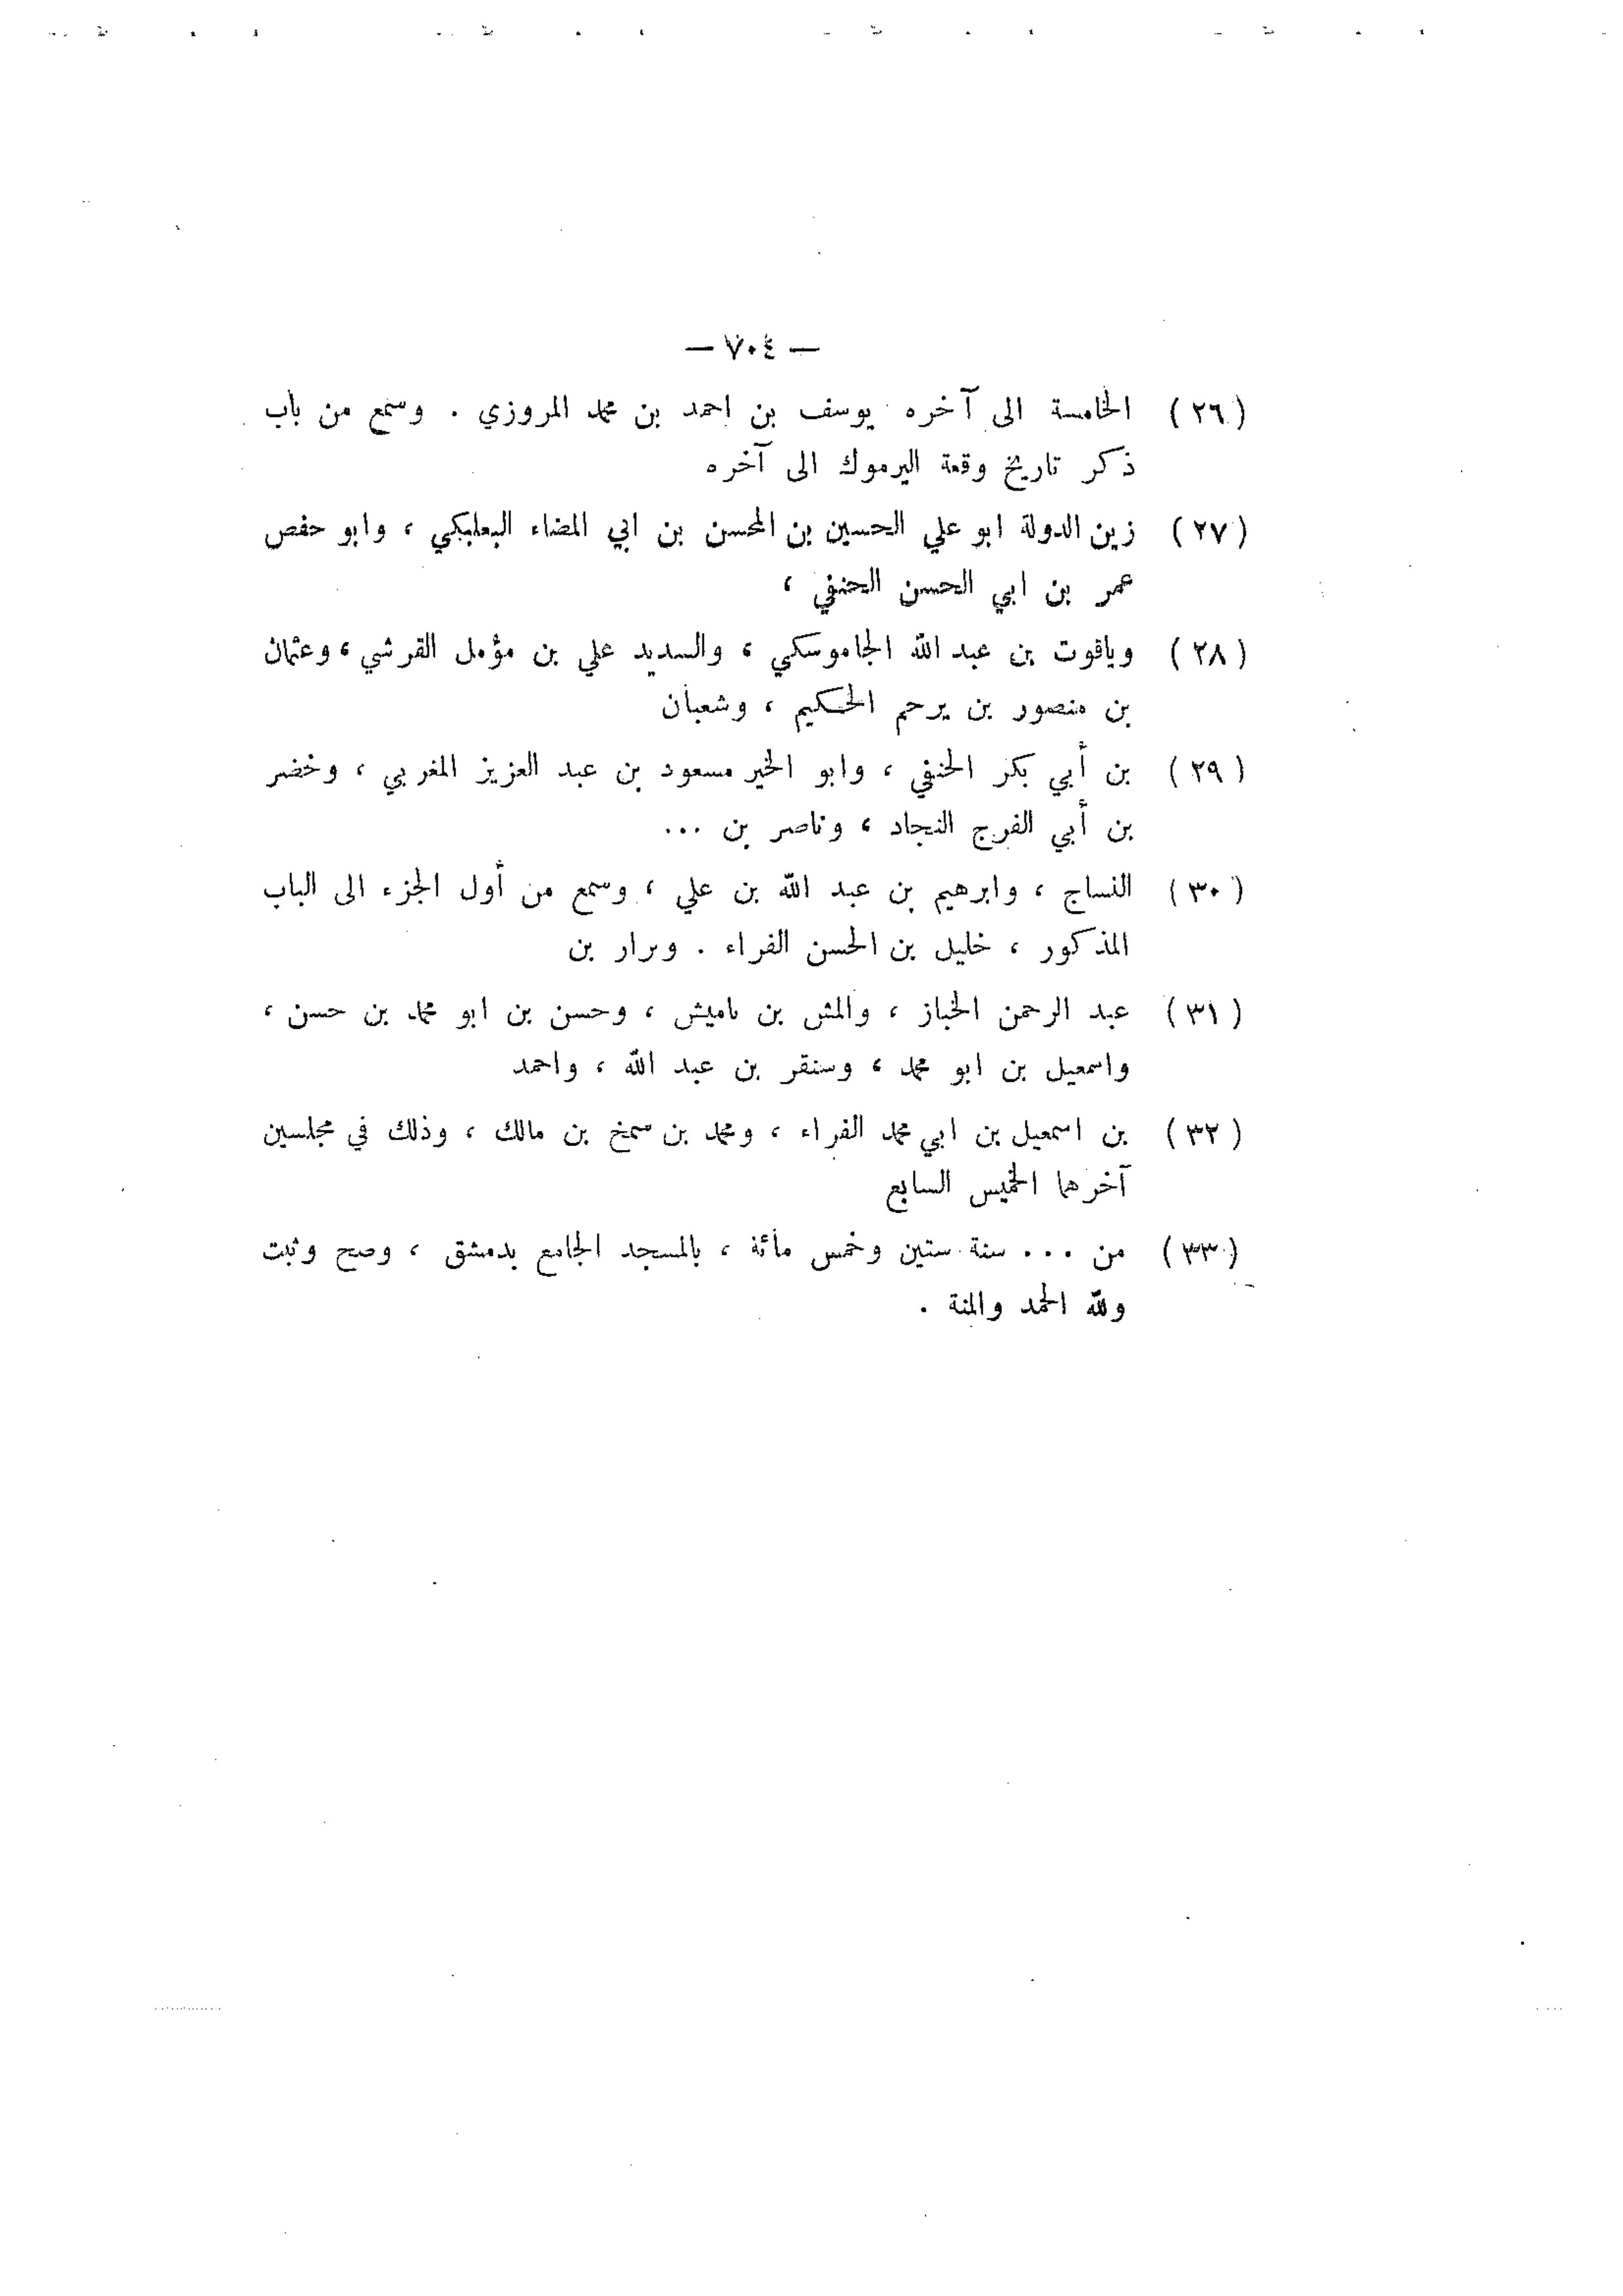 — ٧٠٤ —
( ٢٦ ) الخامسة الى آخره يوسف بن احمد بن محمد المروزي . وسمع من باب
ذكر تاريخ وقعة اليرموك الى آخره
( ٢٧ ) زين الدولة ابو علي الحسين بن المحسن بن ابي المضاء البعلبكي ، وابو حفص
عمر بن ابي الحسن الحنفي ،
( ٢٨ ) وياقوت بن عبد الله الجاموسكي ، والسديد علي بن مؤمل القرشي ، وعثمان
بن منصور بن يرحم الحكيم ، وشعبان
( ٢٩ ) بن أبي بكر الحنفي ، وابو الخير مسعود بن عبد العزيز المغربي ، وخضر
بن أبي الفرج النجاد ، وناصر بن ...
( ٣٠ ) النساج ، وابرهيم بن عبد الله بن علي ، وسمع من أول الجزء الى الباب
المذكور ، خليل بن الحسن الفراء . وبرار بن
( ٣١ ) عبد الرحمن الخباز ، والمش بن باميش ، وحسن بن ابو محمد بن حسن ،
واسمعيل بن ابو محمد ، وسنقر بن عبد الله ، واحمد
( ٣٢ ) بن اسمعيل بن ابي محمد الفراء ، ومحمد بن سمخ بن مالك ، وذلك في مجلسين
آخرهما الخميس السابع
( ٣٣ ) من ... سنة ستين وخمس مائة ، بالمسجد الجامع بدمشق ، وصح وثبت
ولله الحمد والمنة .